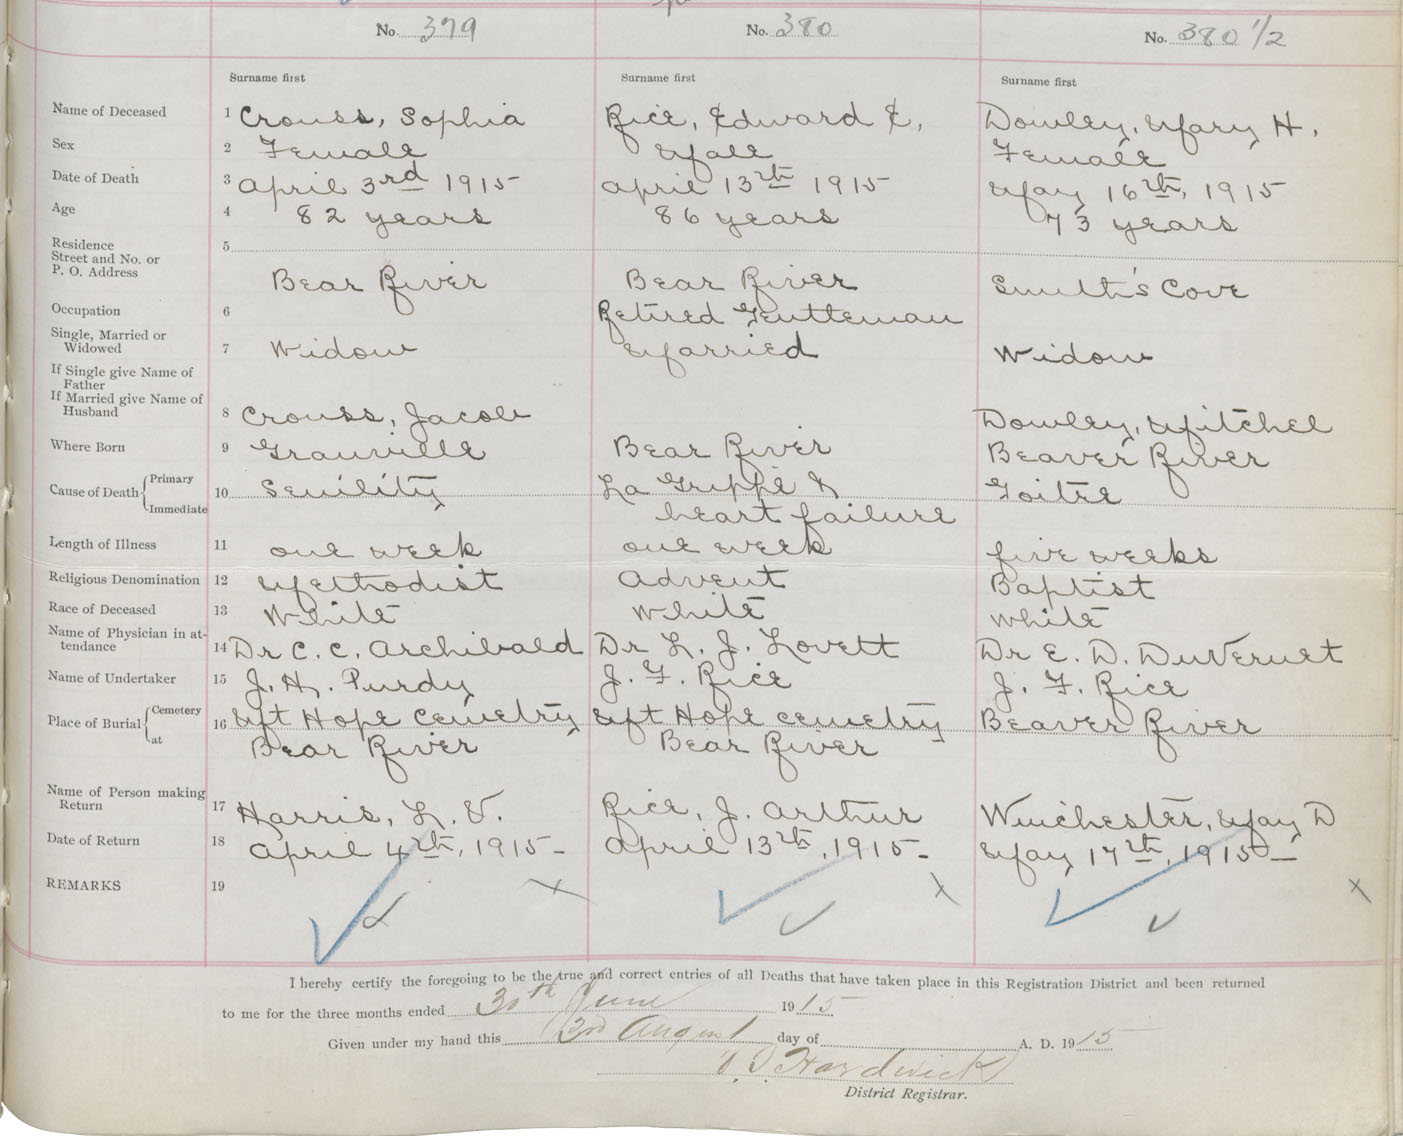 No. 379 No. 380 No. 380 1/2
Surname first Surname first Surname first
Name of Deceased 1 Crouss, Sophia Rice, Edward E, Dowley, Mary H.
Sex 2 Female Male Female
Date of Death 3 April 3rd 1915 April 13th 1915 May 16th, 1915
Age 4 82 years 86 years 73 years
Residence 5
Street and No. or
P. O. Address Bear River Bear River Smith's Cove
Occupation 6 Retired Gentleman
Single, Married or
Widowed 7 Widow Married Widow
If Single give Name of
Father
If Married give Name of
Husband 8 Crouss, Jacob Dowley, Mitchel
Where Born 9 Granville Bear River Beaver River
Cause of Death { Primary 10 Senility La Grippe & Goitre
Immediate heart failure
Length of Illness 11 one week one week five weeks
Religious Denomination 12 Methodist Advent Baptist
Race of Deceased 13 White White White
Name of Physician in at-
tendance 14 Dr C. C. Archibald Dr L. J. Lovett Dr E. D. DuVernet
Name of Undertaker 15 J. H. Purdy J. F. Rice J. F. Rice
Place of Burial { Cemetery 16 Mt Hope Cemetry Mt Hope Cemetry Beaver River
at Bear River Bear River
Name of Person making
Return 17 Harris, L. V. Rice, J. Arthur Winchester, May D
Date of Return 18 April 4th, 1915- April 13th, 1915- May 17th, 1915-
REMARKS 19
I hereby certify the foregoing to be the true and correct entries of all Deaths that have taken place in this Registration District and been returned
to me for the three months ended 30th June 1915
Given under my hand this 3rd August day of A. D. 1915
Hardwick
District Registrar.